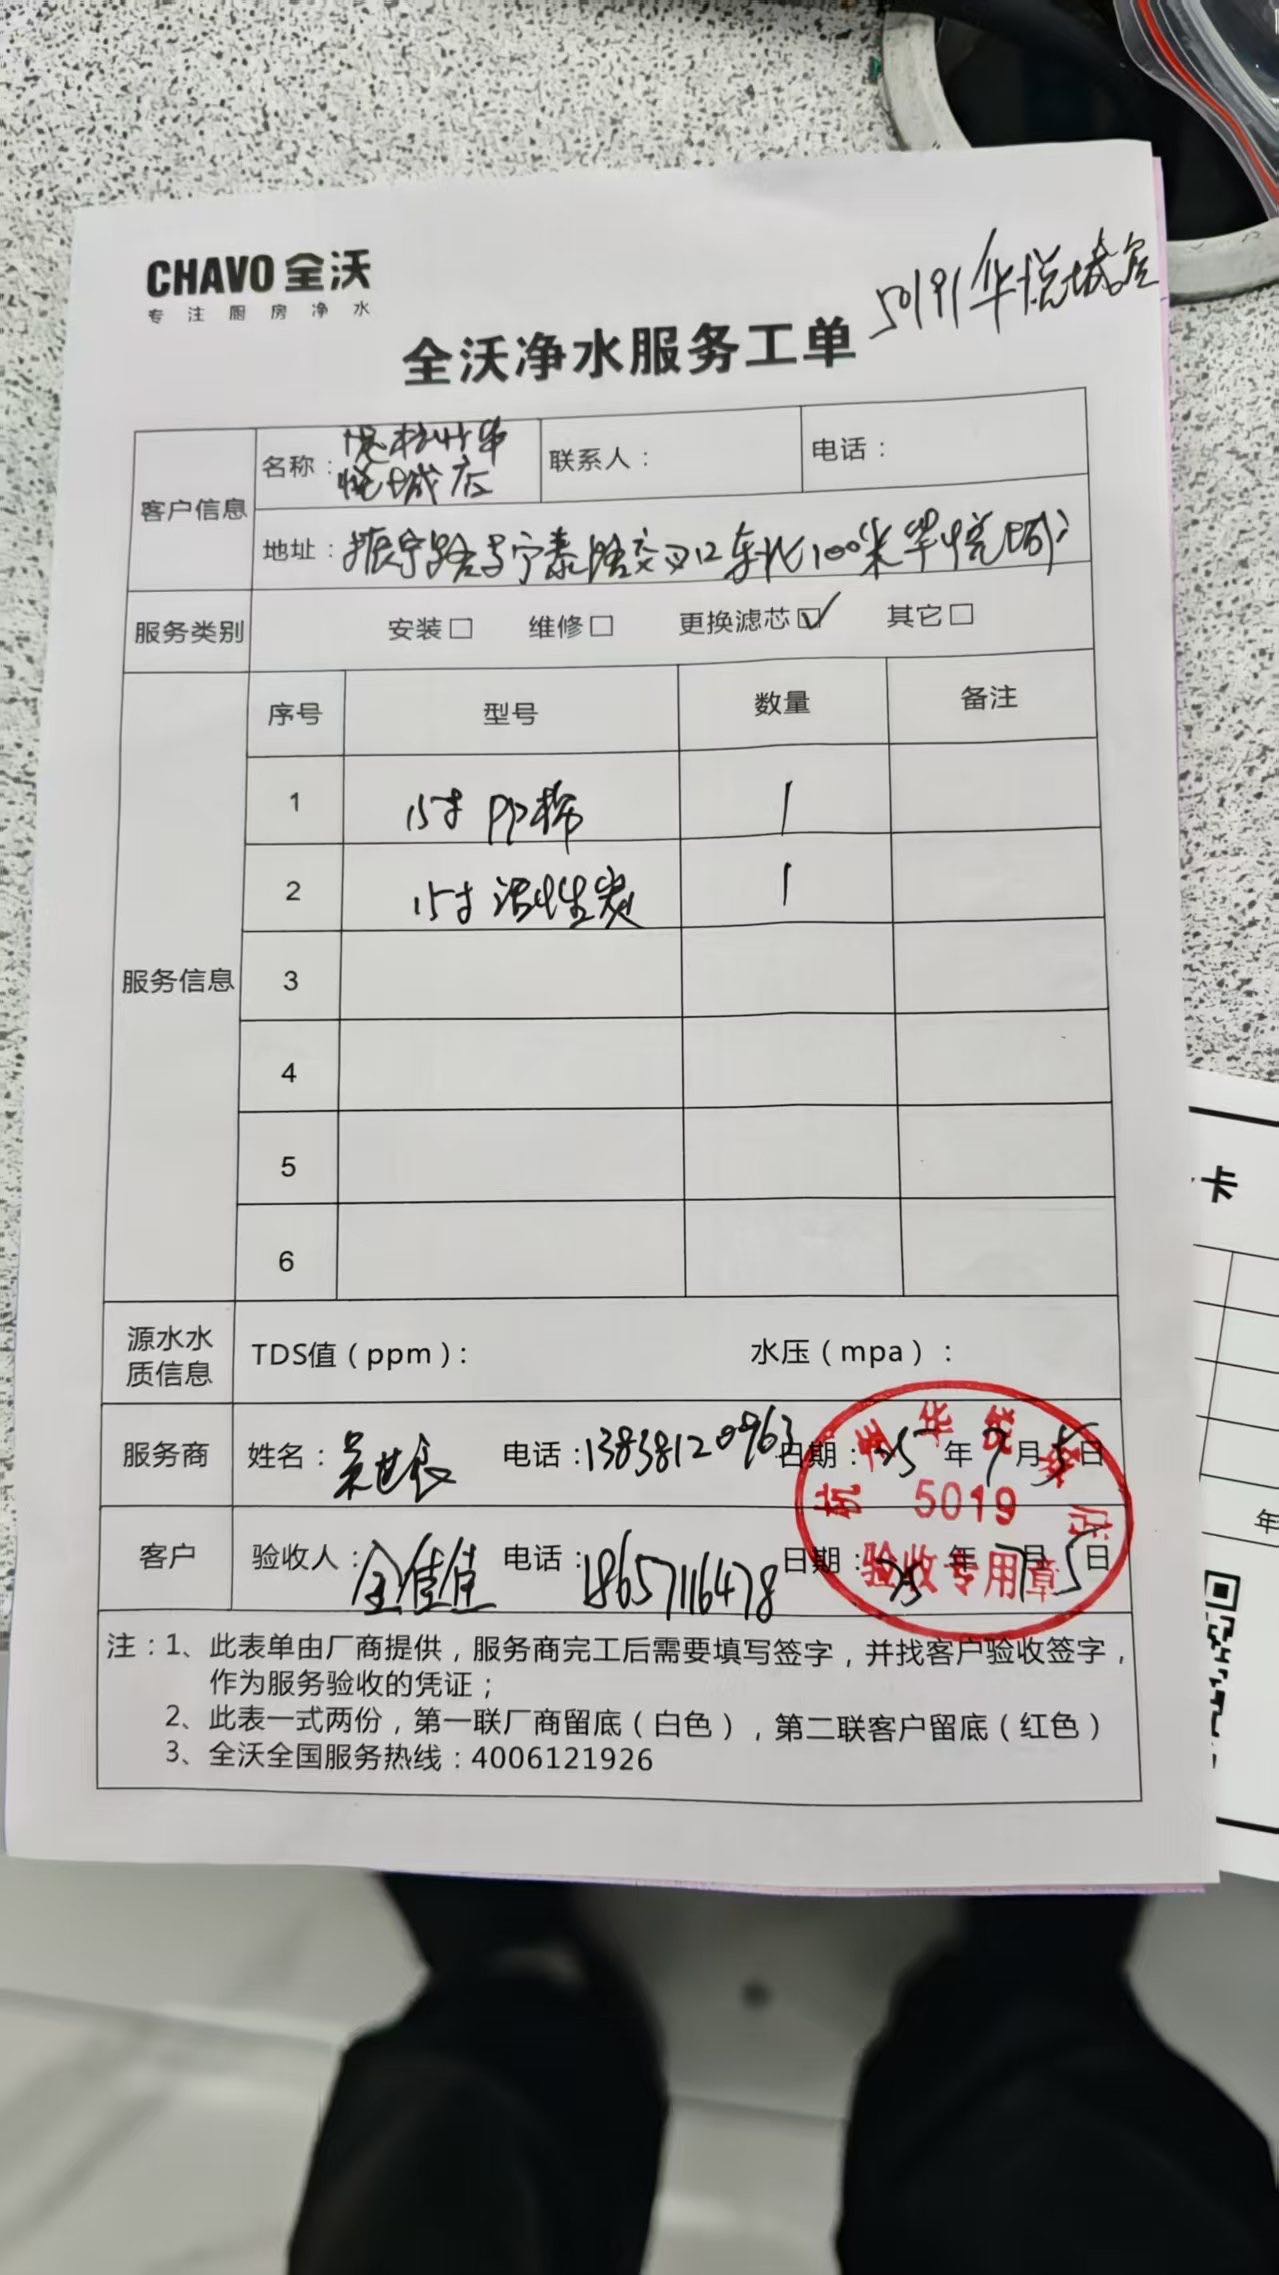 CHAVO 全沃
专注厨房净水
5019/华悦城店
全沃净水服务工单
客户信息
名称： 杭州华悦城店
联系人：
电话：
地址： 振宁路与宁泰路交叉口东北100米华悦城
服务类别 安装□ 维修□ 更换滤芯☑ 其它□
服务信息
序号 型号 数量 备注
1 15寸 PP棉 1
2 15寸 活性炭 1
3
4
5
6
源水水质信息 TDS值（ppm）： 水压（mpa）：
服务商 姓名： 吴世良 电话：13838120963 日期：25年7月5日
客户 验收人： 全佳佳 电话：18657116478 日期：25年7月5日
华悦城店
5019
验收专用章
注：1、此表单由厂商提供，服务商完工后需要填写签字，并找客户验收签字，
作为服务验收的凭证；
2、此表一式两份，第一联厂商留底（白色），第二联客户留底（红色）
3、全沃全国服务热线：4006121926
卡
年